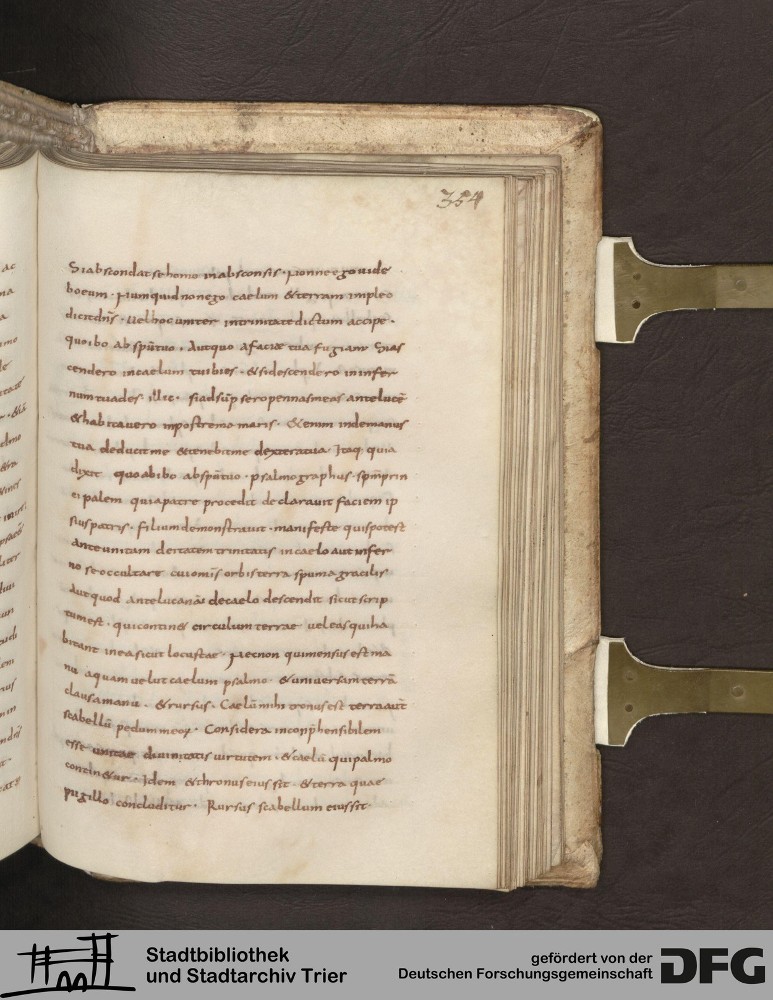 354
Siabscondatsehomo inabsconsis · Nonne ego uide
boeum · Numquid non ego caelum & terram impleo
dicit dn̄s · Uel hoc
quo ibo ab sp̄u tuo · Aut quo a facie tua fugiam Sias
cendero in caelum tu ibi es · & si descendero in infer
num tu ades illic · si adsūp sero pennas meas ante lucē
& habitauero in postremo maris · & enim inde manus
tua deducit me & tenebit me dextera tua · Itaq; quia
dixit quo abibo ab sp̄u tuo · psalmographus · sp̄m prin
cipalem qui a patre procedit declarauit faciem ip
sius patris · filium demonstrauit · manifeste quis potest
ante unitam deitatem trinitatis in caelo aut infer
no se occultare cui om̄is orbis terra spuma gracilis
Aut quod antelucana de caelo descendit sicut scrip
tum est · qui contin& circulum terrae uel eas qui ha
bitant in ea sicut locustae · Necnon qui mensus est ma
nu aquam uelut caelum psalmo · & uniuersam terrā
clausa manu · & rursus · Caelū mihi tronus est terra aut̄
scabellū pedum meoꝝ · Considera inconp̄hensibilem
esse unitae diuinitatis uirtutem · & caelū qui palmo
contin&ur · Idem & thronus eius sit · & terra quae
pugillo concluditur · Rursus scabellum eius sit
ac
na
Stadtbibliothek
und Stadtarchiv Trier
gefördert von der
Deutschen Forschungsgemeinschaft
DFG